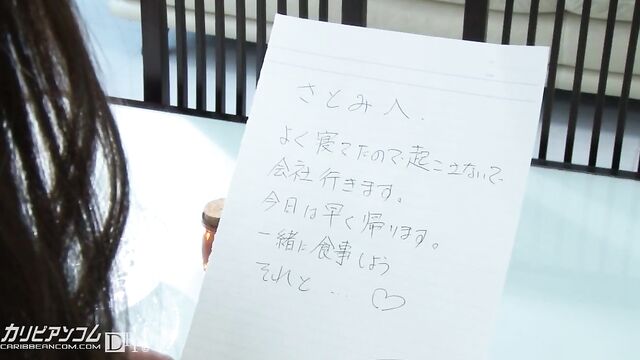 さとみへ.
よく寝てたので起こさないで
会社行きます。
今日は早く帰ります。
一緒に食事しよう
それと … ♡
カリビアンコム
CARIBBEANCOM.COM